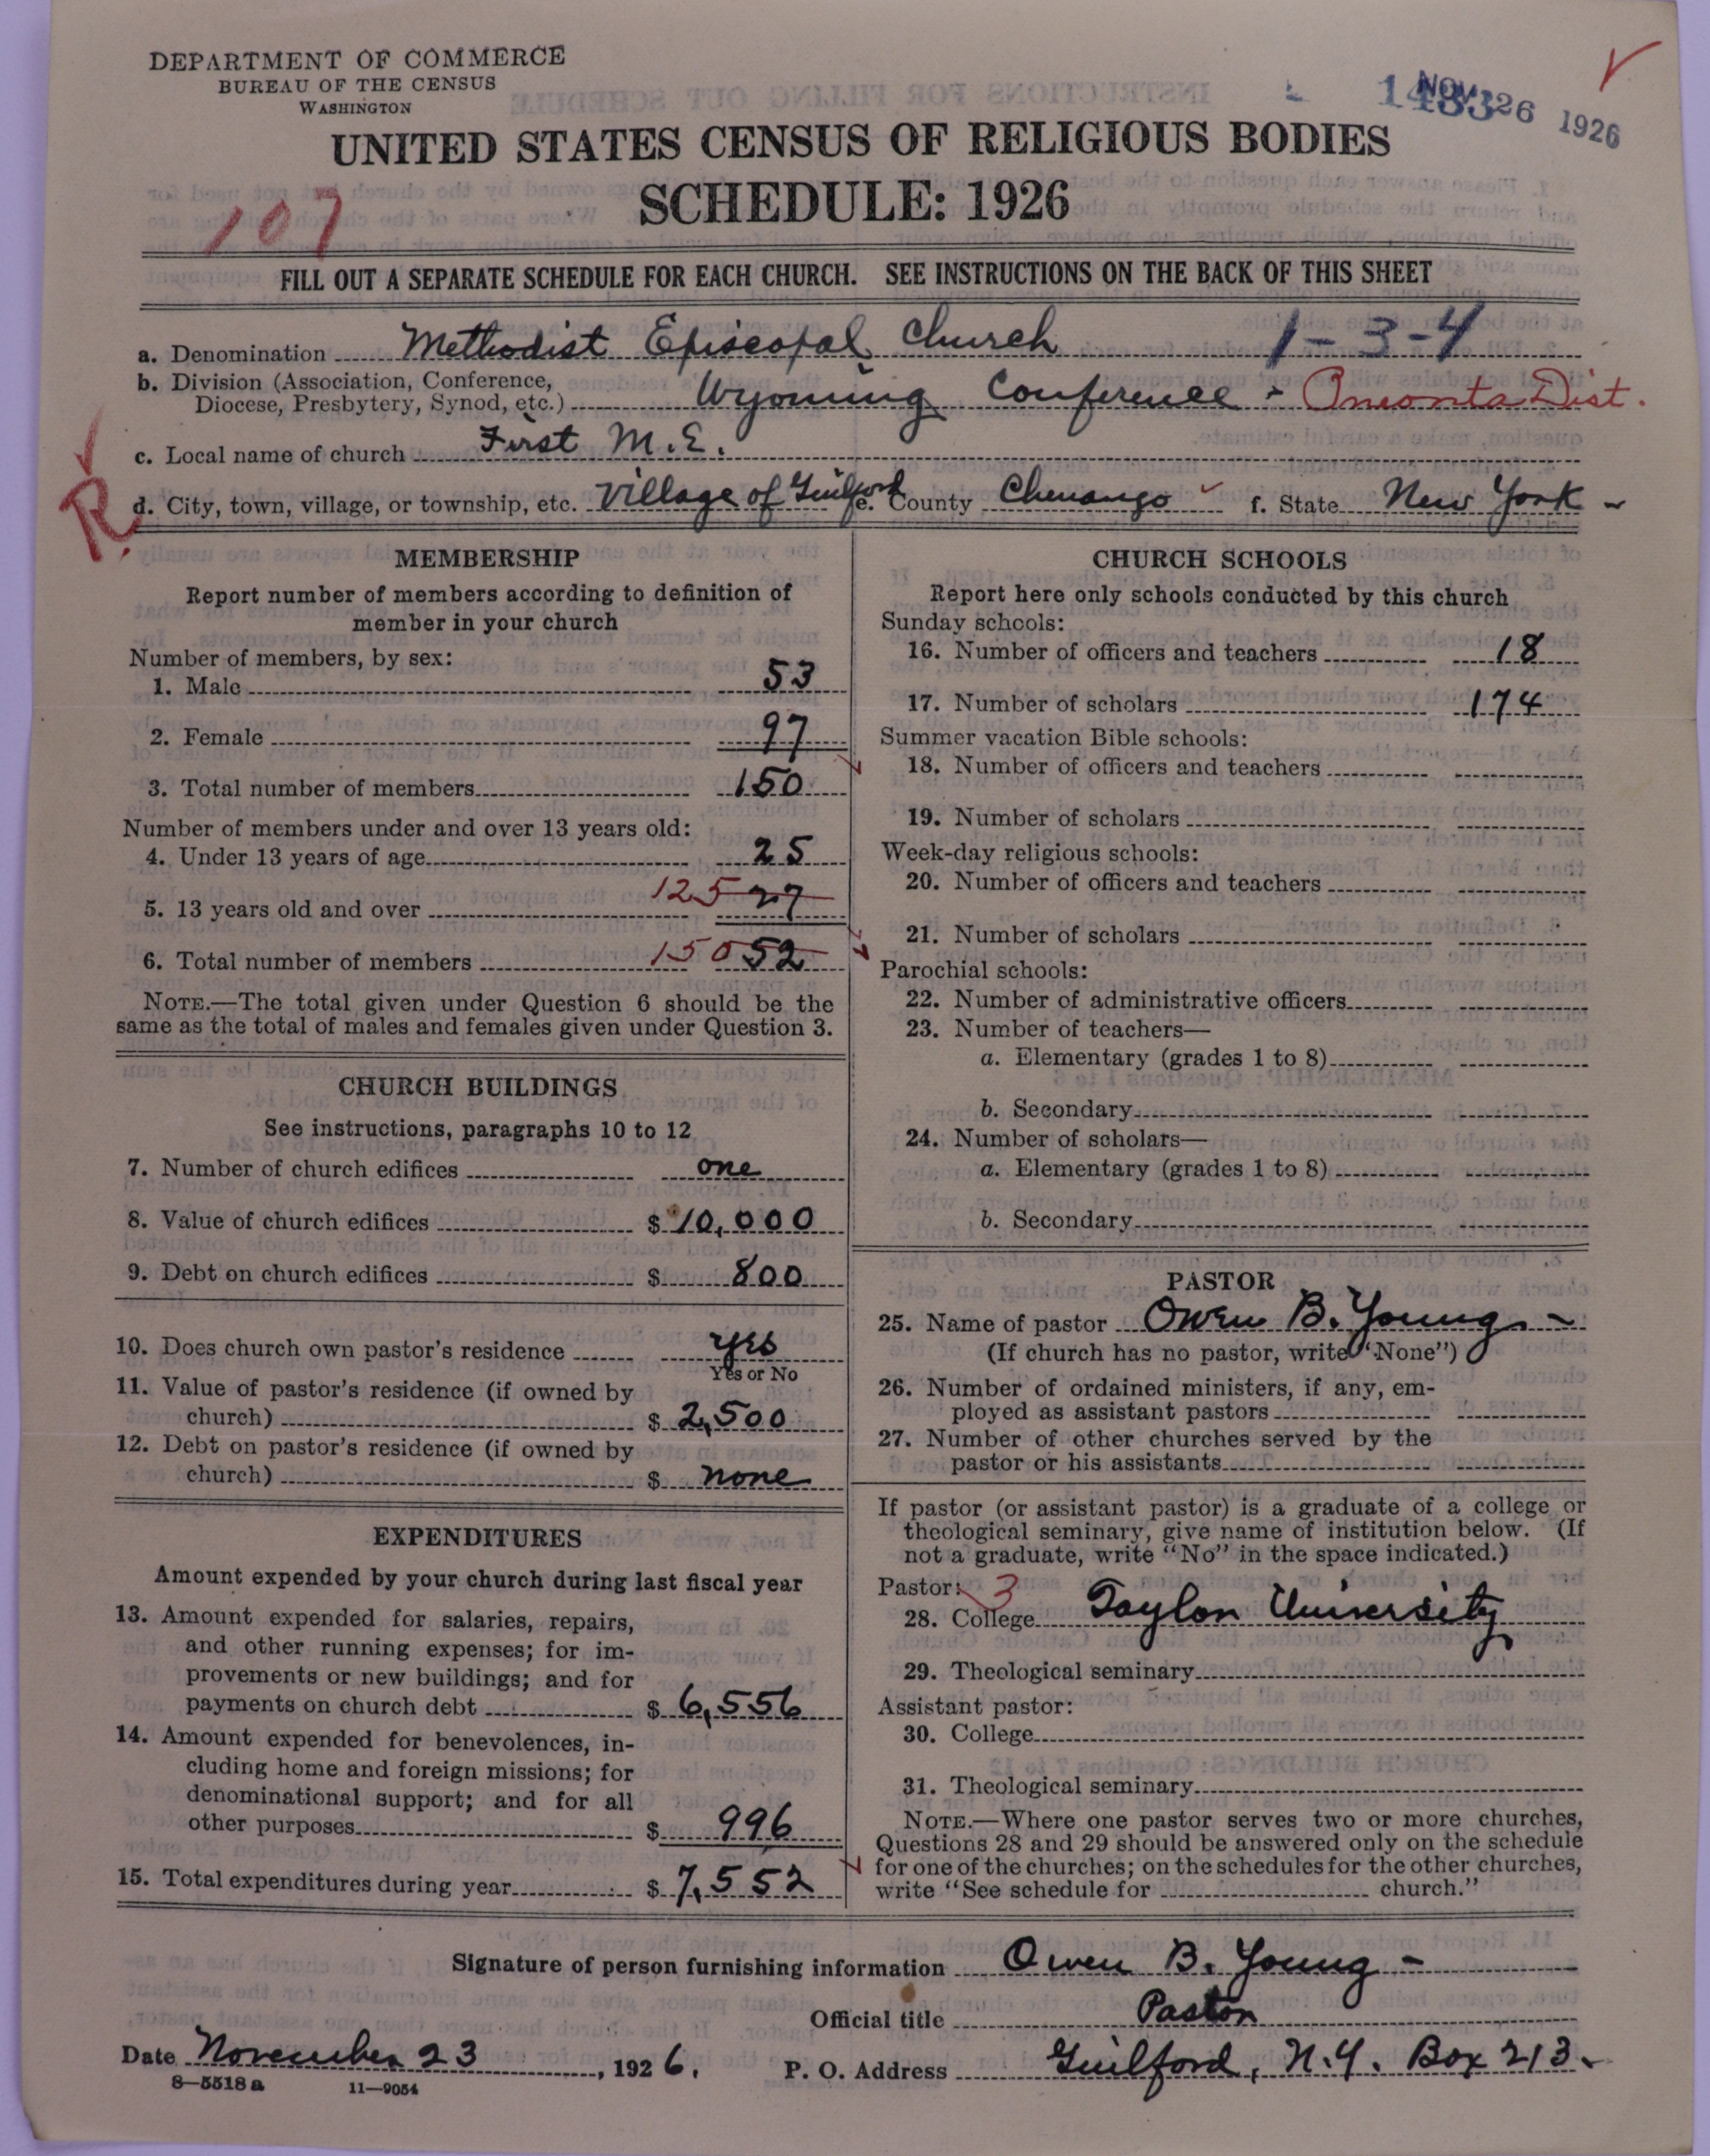 DEPARTMENT OF COMMERCE
BUREAU OF THE CENSUS
WASHINGTON
NOV 26 1926
UNITED STATES CENSUS OF RELIGIOUS BODIES
SCHEDULE: 1926
107
FILL OUT A SEPARATE SCHEDULE FOR EACH CHURCH. SEE INSTRUCTIONS ON THE BACK OF THIS SHEET
a. Denomination Methodist Episcopal Church 1-3-4
b. Division (Association, Conference,
Diocese, Presbytery, Synod, etc.) Wyoming Conference - Oneonta Dist.
c. Local name of church First M.E.
R.
d. City, town, village, or township, etc. Village of Guilford e. County Chenango f. State New York
MEMBERSHIP
Report number of members according to definition of
member in your church
Number of members, by sex:
1. Male 53
2. Female 97
3. Total number of members 150
Number of members under and over 13 years old:
4. Under 13 years of age 25
5. 13 years old and over 125 27
6. Total number of members 150 52
NOTE.—The total given under Question 6 should be the
same as the total of males and females given under Question 3.
CHURCH BUILDINGS
See instructions, paragraphs 10 to 12
7. Number of church edifices one
8. Value of church edifices $ 10,000
9. Debt on church edifices $ 800
10. Does church own pastor's residence yes
Yes or No
11. Value of pastor's residence (if owned by
church) $ 2,500
12. Debt on pastor's residence (if owned by
church) $ none
EXPENDITURES
Amount expended by your church during last fiscal year
13. Amount expended for salaries, repairs,
and other running expenses; for im-
provements or new buildings; and for
payments on church debt $ 6,556
14. Amount expended for benevolences, in-
cluding home and foreign missions; for
denominational support; and for all
other purposes $ 996
15. Total expenditures during year $ 7,552
CHURCH SCHOOLS
Report here only schools conducted by this church
Sunday schools:
16. Number of officers and teachers 18
17. Number of scholars 174
Summer vacation Bible schools:
18. Number of officers and teachers
19. Number of scholars
Week-day religious schools:
20. Number of officers and teachers
21. Number of scholars
Parochial schools:
22. Number of administrative officers
23. Number of teachers—
a. Elementary (grades 1 to 8)
b. Secondary
24. Number of scholars—
a. Elementary (grades 1 to 8)
b. Secondary
PASTOR
25. Name of pastor Owen B. Young
(If church has no pastor, write "None")
26. Number of ordained ministers, if any, em-
ployed as assistant pastors
27. Number of other churches served by the
pastor or his assistants
If pastor (or assistant pastor) is a graduate of a college or
theological seminary, give name of institution below. (If
not a graduate, write "No" in the space indicated.)
Pastor: 3
28. College Taylor University
29. Theological seminary
Assistant pastor:
30. College
31. Theological seminary
NOTE.—Where one pastor serves two or more churches,
Questions 28 and 29 should be answered only on the schedule
for one of the churches; on the schedules for the other churches,
write "See schedule for church."
Signature of person furnishing information Owen B. Young
Official title Pastor
Date November 23, 1926. P. O. Address Guilford, N.Y. Box 213.
8—5518a 11—9054